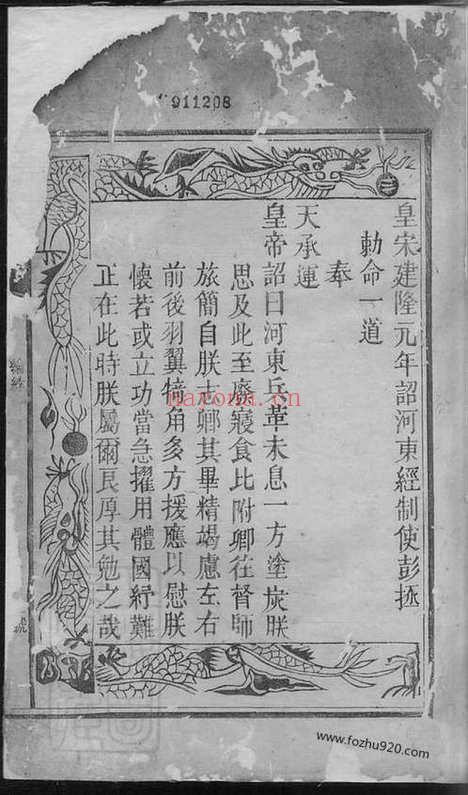 911208
皇宋建隆元年詔河東經制使彭拯
勅命一道
奉
天承運
皇帝詔曰河東兵革未息一方塗炭朕
思及此至廢寢食比附卿在督師
旅簡自朕志卿其畢精竭慮左右
前後羽翼犄角多方援應以慰朕
懷若或立功當急擢用體國紓難
正在此時朕屬爾良厚其勉之哉
nayona.cn
www.fozhu920.com